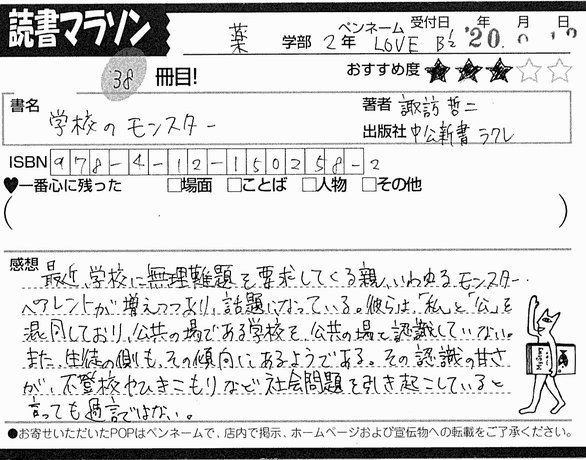 読書マラソン
薬 学部 2年 ペンネーム LOVE B'z 受付日 '20 年 月 日
38 冊目!
おすすめ度 ★★★☆☆
書名 学校のモンスター
著者 諏訪哲二
出版社 中公新書ラクレ
ISBN 978-4-12-150258-2
♥一番心に残った □場面 □ことば □人物 □その他
( )
感想 最近、学校に無理難題を要求してくる親、いわゆるモンスター
ペアレントが増えつつあり、話題になっている。彼らは「私」と「公」を
混同しており、公共の場である学校を、公共の場と認識していない。
また、生徒の側も、その傾向にあるようである。その認識の甘さ
が、不登校やひきこもりなど社会問題を引き起こしていると
言っても過言ではない。
●お寄せいただいたPOPはペンネームで、店内で掲示、ホームページおよび宣伝物への転載をご了承ください。